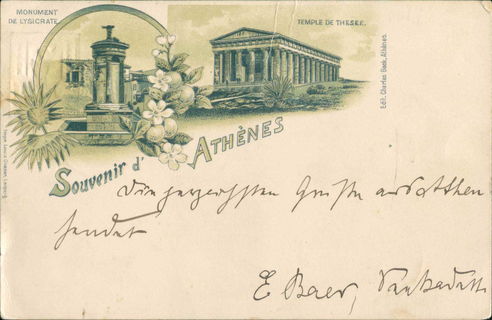 MONUMENT
DE LYSICRATE
TEMPLE DE THESÉE.
Edit. Charles Beck, Athènes.
Souvenir d'
ATHÈNES
Die herzlichsten Grüße aus Athen
sendet
E. Baer,